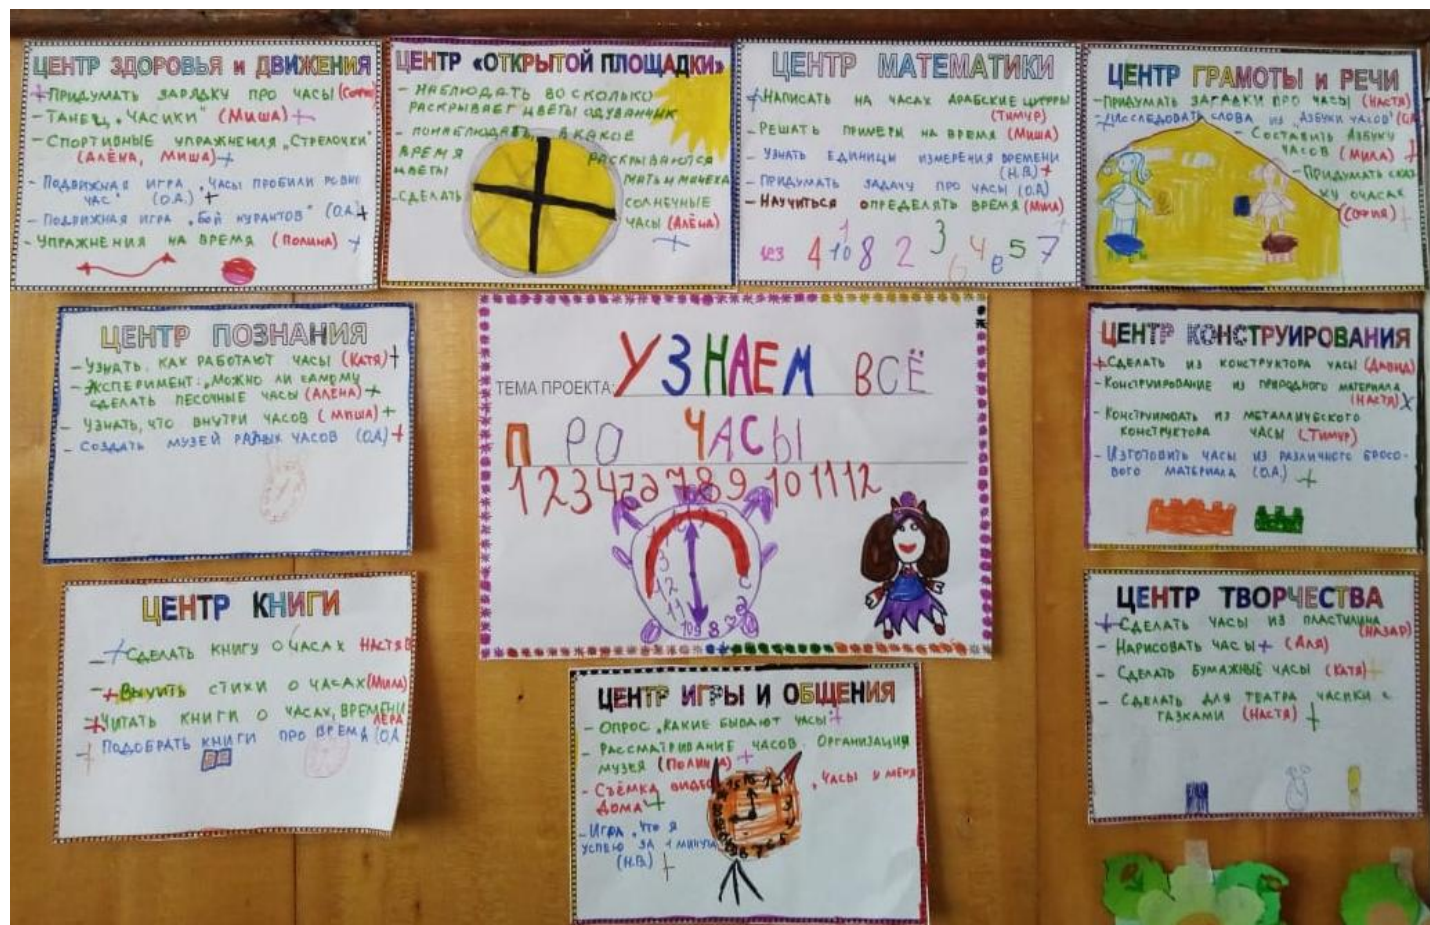 ЦЕНТР ЗДОРОВЬЯ и ДВИЖЕНИЯ
+ ПРИДУМАТЬ ЗАРЯДКУ ПРО ЧАСЫ (СОФИЯ)
- ТАНЕЦ „ЧАСИКИ" (МИША) +
- СПОРТИВНЫЕ УПРАЖНЕНИЯ „СТРЕЛОЧКИ"
(АЛЁНА, МИША) +
- ПОДВИЖНАЯ ИГРА „ЧАСЫ ПРОБИЛИ РОВНО
ЧАС" (О.А.) +
- ПОДВИЖНАЯ ИГРА „БОЙ КУРАНТОВ" (О.А.) +
- УПРАЖНЕНИЯ НА ВРЕМЯ (ПОЛИНА) +
ЦЕНТР «ОТКРЫТОЙ ПЛОЩАДКИ»
- НАБЛЮДАТЬ ВО СКОЛЬКО
РАСКРЫВАЕТ ЦВЕТЫ ОДУВАНЧИК
- ПОНАБЛЮДАТЬ, В КАКОЕ
ВРЕМЯ РАСКРЫВАЮТСЯ
ЦВЕТЫ МАТЬ И МАЧЕХА
- СДЕЛАТЬ СОЛНЕЧНЫЕ
ЧАСЫ (АЛЁНА)
+
ЦЕНТР МАТЕМАТИКИ
+ НАПИСАТЬ НА ЧАСАХ АРАБСКИЕ ЦИФРЫ
(ТИМУР)
- РЕШАТЬ ПРИМЕРЫ НА ВРЕМЯ (МИША)
- УЗНАТЬ ЕДИНИЦЫ ИЗМЕРЕНИЯ ВРЕМЕНИ
(Н.В.) +
- ПРИДУМАТЬ ЗАДАЧУ ПРО ЧАСЫ (О.А)
- НАУЧИТЬСЯ ОПРЕДЕЛЯТЬ ВРЕМЯ (МИЛА)
4 10 8 2 3 4 5 7
ЦЕНТР ГРАМОТЫ и РЕЧИ
- ПРИДУМАТЬ ЗАГАДКИ ПРО ЧАСЫ (НАСТЯ)
- ИССЛЕДОВАТЬ СЛОВА ИЗ „АЗБУКИ ЧАСОВ"
- СОСТАВИТЬ АЗБУКУ
ЧАСОВ (МИЛА) +
- ПРИДУМАТЬ СКАЗ
КУ О ЧАСАХ
(СОФИЯ) +
ЦЕНТР ПОЗНАНИЯ
- УЗНАТЬ, КАК РАБОТАЮТ ЧАСЫ (КАТЯ) +
- ЭКСПЕРИМЕНТ: „МОЖНО ЛИ САМОМУ
СДЕЛАТЬ ПЕСОЧНЫЕ ЧАСЫ (АЛЕНА) +
- УЗНАТЬ, ЧТО ВНУТРИ ЧАСОВ (МИША) +
- СОЗДАТЬ МУЗЕЙ РАЗНЫХ ЧАСОВ (О.А) +
ТЕМА ПРОЕКТА: УЗНАЕМ ВСЁ
ПРО ЧАСЫ
1 2 3 4 5 6 7 8 9 10 11 12
ЦЕНТР КОНСТРУИРОВАНИЯ
+ СДЕЛАТЬ ИЗ КОНСТРУКТОРА ЧАСЫ (ДАВИД)
- КОНСТРУИРОВАНИЕ ИЗ ПРИРОДНОГО МАТЕРИАЛА
(НАСТЯ) X
- КОНСТРУИРОАТЬ ИЗ МЕТАЛЛИЧЕСКОГО
КОНСТРУКТОРА ЧАСЫ (ТИМУР)
- ИЗГОТОВИТЬ ЧАСЫ ИЗ РАЗЛИЧНОГО БРОСО-
ВОГО МАТЕРИАЛА (О.А.) +
ЦЕНТР КНИГИ
- + СДЕЛАТЬ КНИГУ О ЧАСАХ НАСТЯ
- + ВЫУЧИТЬ СТИХИ О ЧАСАХ (МИЛА)
+ ЧИТАТЬ КНИГИ О ЧАСАХ, ВРЕМЕНИ
ЛЕРА
+ ПОДОБРАТЬ КНИГИ ПРО ВРЕМЯ (О.А
ЦЕНТР ИГРЫ И ОБЩЕНИЯ
- ОПРОС „КАКИЕ БЫВАЮТ ЧАСЫ" +
- РАССМАТРИВАНИЕ ЧАСОВ. ОРГАНИЗАЦИЯ
МУЗЕЯ (ПОЛИНА) +
- СЪЁМКА ВИДЕО „ЧАСЫ У МЕНЯ
ДОМА" +
- ИГРА „ЧТО Я
УСПЕЮ ЗА 1 МИНУТУ
(Н.В.) +
ЦЕНТР ТВОРЧЕСТВА
+ СДЕЛАТЬ ЧАСЫ ИЗ ПЛАСТИЛИНА
(НАЗАР)
- НАРИСОВАТЬ ЧАСЫ + (АЛЯ)
- СДЕЛАТЬ БУМАЖНЫЕ ЧАСЫ (КАТЯ) +
- СДЕЛАТЬ ДЛЯ ТЕАТРА ЧАСИКИ С
ГАЗКАМИ (НАСТЯ) +